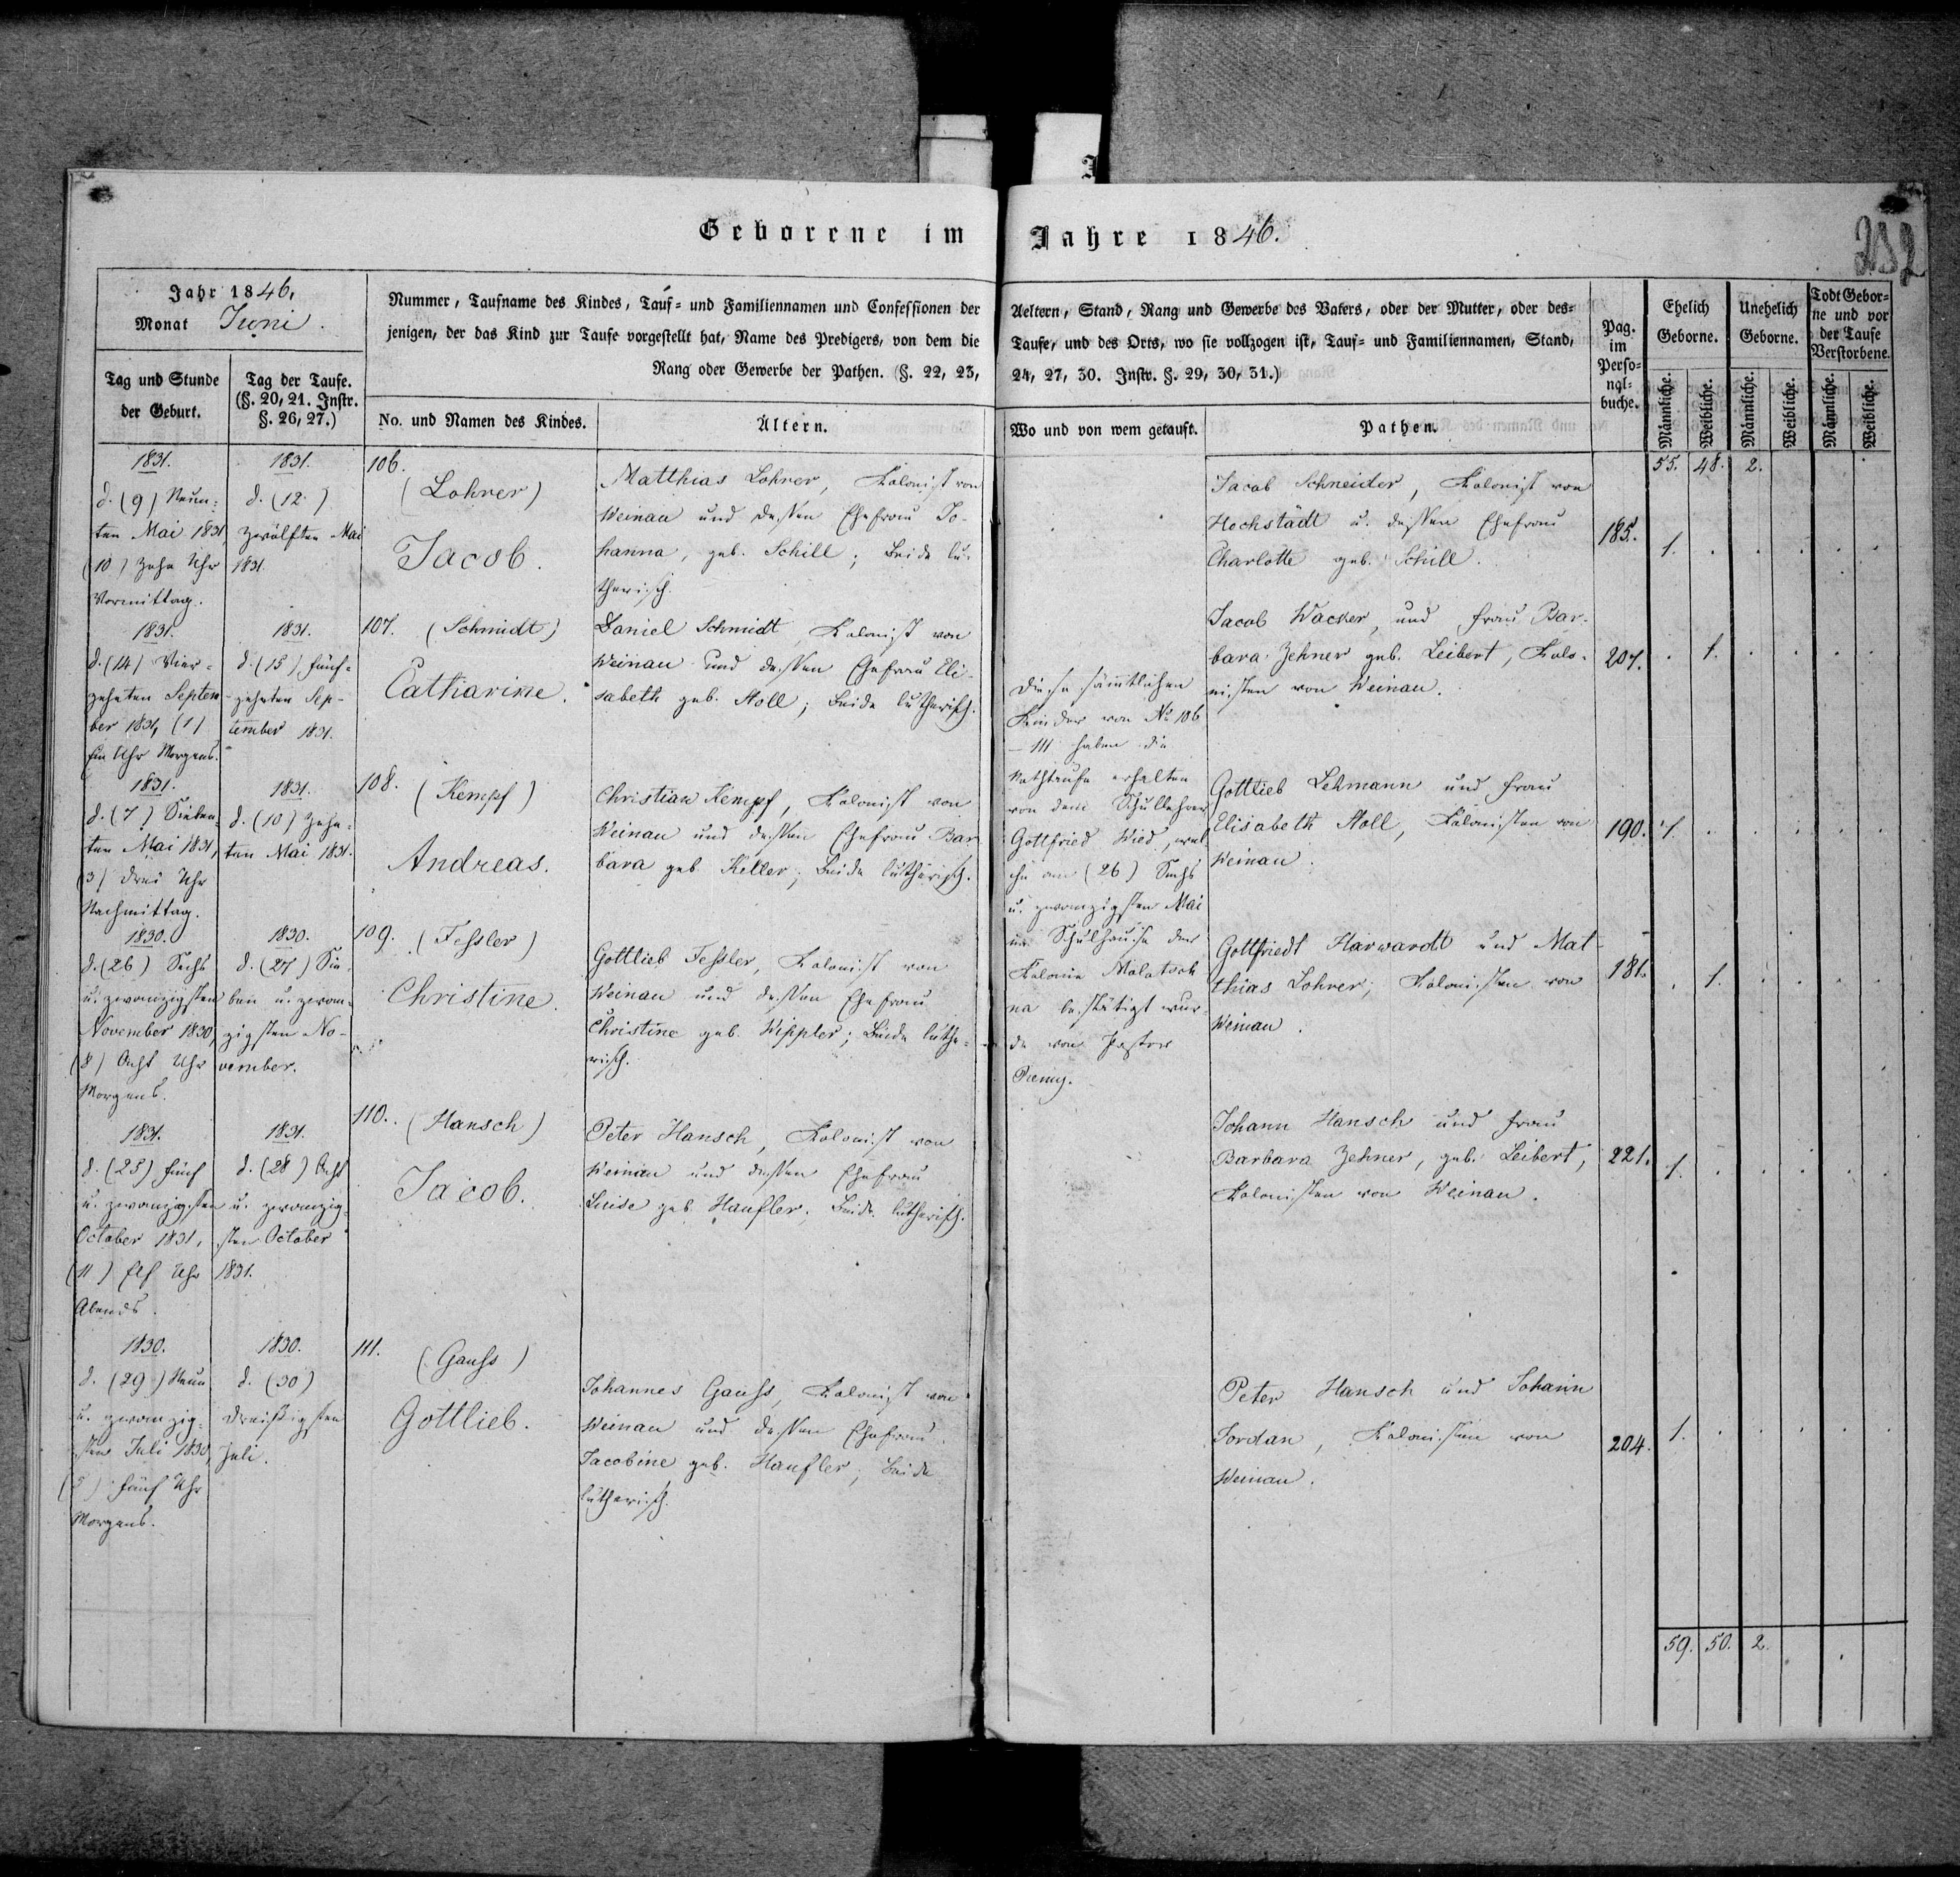 Geborene im Jahre 1846.
252
Jahr 1846,
Monat Juni.
Tag und Stunde
der Geburt.
Tag der Taufe.
(§. 20, 21. Instr.
§. 26, 27.)
Nummer, Taufname des Kindes, Tauf- und Familiennamen und Confessionen der
jenigen, der das Kind zur Taufe vorgestellt hat, Name des Predigers, von dem die
Rang oder Gewerbe der Pathen. (§. 22, 23,
No. und Namen des Kindes.
Ältern.
Aeltern, Stand, Rang und Gewerbe des Vaters, oder der Mutter, oder des-
Taufe, und des Orts, wo sie vollzogen ist, Tauf- und Familiennamen, Stand,
24, 27, 30. Instr. §. 29, 30, 31.)
Wo und von wem getauft.
Pathen.
Pag.
im
Perso-
nal-
buche.
Ehelich
Geborne.
Unehelich
Geborne.
Todt Gebor-
ne und vor
der Taufe
Verstorbene.
Männliche.
Weibliche.
Männliche.
Weibliche.
Männliche.
Weibliche.
55. 48. 2.
1831.
d. (9) Neun-
ten Mai 1831
(10) Zehn Uhr
Vormittag.
1831.
d. (12.)
zwölften Mai
1831.
106.
(Lohrer)
Jacob.
Matthias Lohrer, Kolonist von
Weinau und dessen Ehefrau Jo-
hanna, geb. Schill; Beide lu-
therisch.
Jacob Schneider, Kolonist von
Hochstädt u. dessen Ehefrau
Charlotte geb. Schill.
185.
1.
1831.
d. (14) Vier-
zehnten Septem
ber 1831, (1)
Ein Uhr Morgens.
1831.
d. (15) fünf-
zehnten Sep-
tember 1831.
107. (Schmidt)
Catharine.
Daniel Schmidt, Kolonist von
Weinau und dessen Ehefrau Eli-
sabeth geb. Noll; Beide lutherisch.
Jacob Wacker, und Frau Bar-
bara Zehner geb. Leibert, Kolo-
nisten von Weinau.
207.
1.
Diese sämtlichen
Kinder von No 106
- 111 haben die
Nothtaufe erhalten
von dem Schullehrer
Gottfried Wied, wel
che am (26) Sechs
u. zwanzigsten Mai
im Schulhause der
Kolonie Molotsch
na bestätigt wur-
de von Pastor
1831.
d. (7) Sieben-
ten Mai 1831,
(3) Drei Uhr
Nachmittag.
1831.
d. (10) Zehn-
ten Mai 1831.
108.
(Kempf)
Andreas.
Christian Kempf, Kolonist von
Weinau und dessen Ehefrau Bar
bara geb. Keller; Beide lutherisch.
Gottlieb Lehmann und Frau
Elisabeth Noll, Kolonisten von
Weinau.
190.
1.
1830.
d. (26) Sechs
u. zwanzigsten
November 1830,
(8) Acht Uhr
Morgens.
1830.
d. (27) Sie-
ben u. zwan-
zigsten No-
vember.
109. (Fessler)
Christine.
Gottlieb Fessler, Kolonist von
Weinau und dessen Ehefrau
Christine geb. Wippler; Beide luthe-
risch.
Gottfriedt Harwardt und Mat-
thias Lohrer; Kolonisten von
Weinau.
181.
1.
1831.
d. (25) fünf
u. zwanzigsten
October 1831,
(11) Elf Uhr
Abends.
1831.
d. (28) Acht
u. zwanzig-
sten October
1831.
110. (Hansch)
Jacob.
Peter Hansch, Kolonist von
Weinau und dessen Ehefrau
Luise geb. Haufler. Beide lutherisch.
Johann Hansch und Frau
Barbara Zehner, geb. Leibert,
Kolonisten von Weinau.
221.
1.
1830.
d. (29) Neun
u. zwanzig-
sten Juli 1830,
(5) fünf Uhr
Morgens.
1830.
d. (30)
Dreißigsten
Juli.
111. (Gauss)
Gottlieb.
Johannes Gauss, Kolonist von
Weinau und dessen Ehefrau
Jacobine geb. Haufler; Beide
lutherisch.
Peter Hansch und Johann
Jordan, Kolonisten von
Weinau.
204.
1.
59. 50. 2.